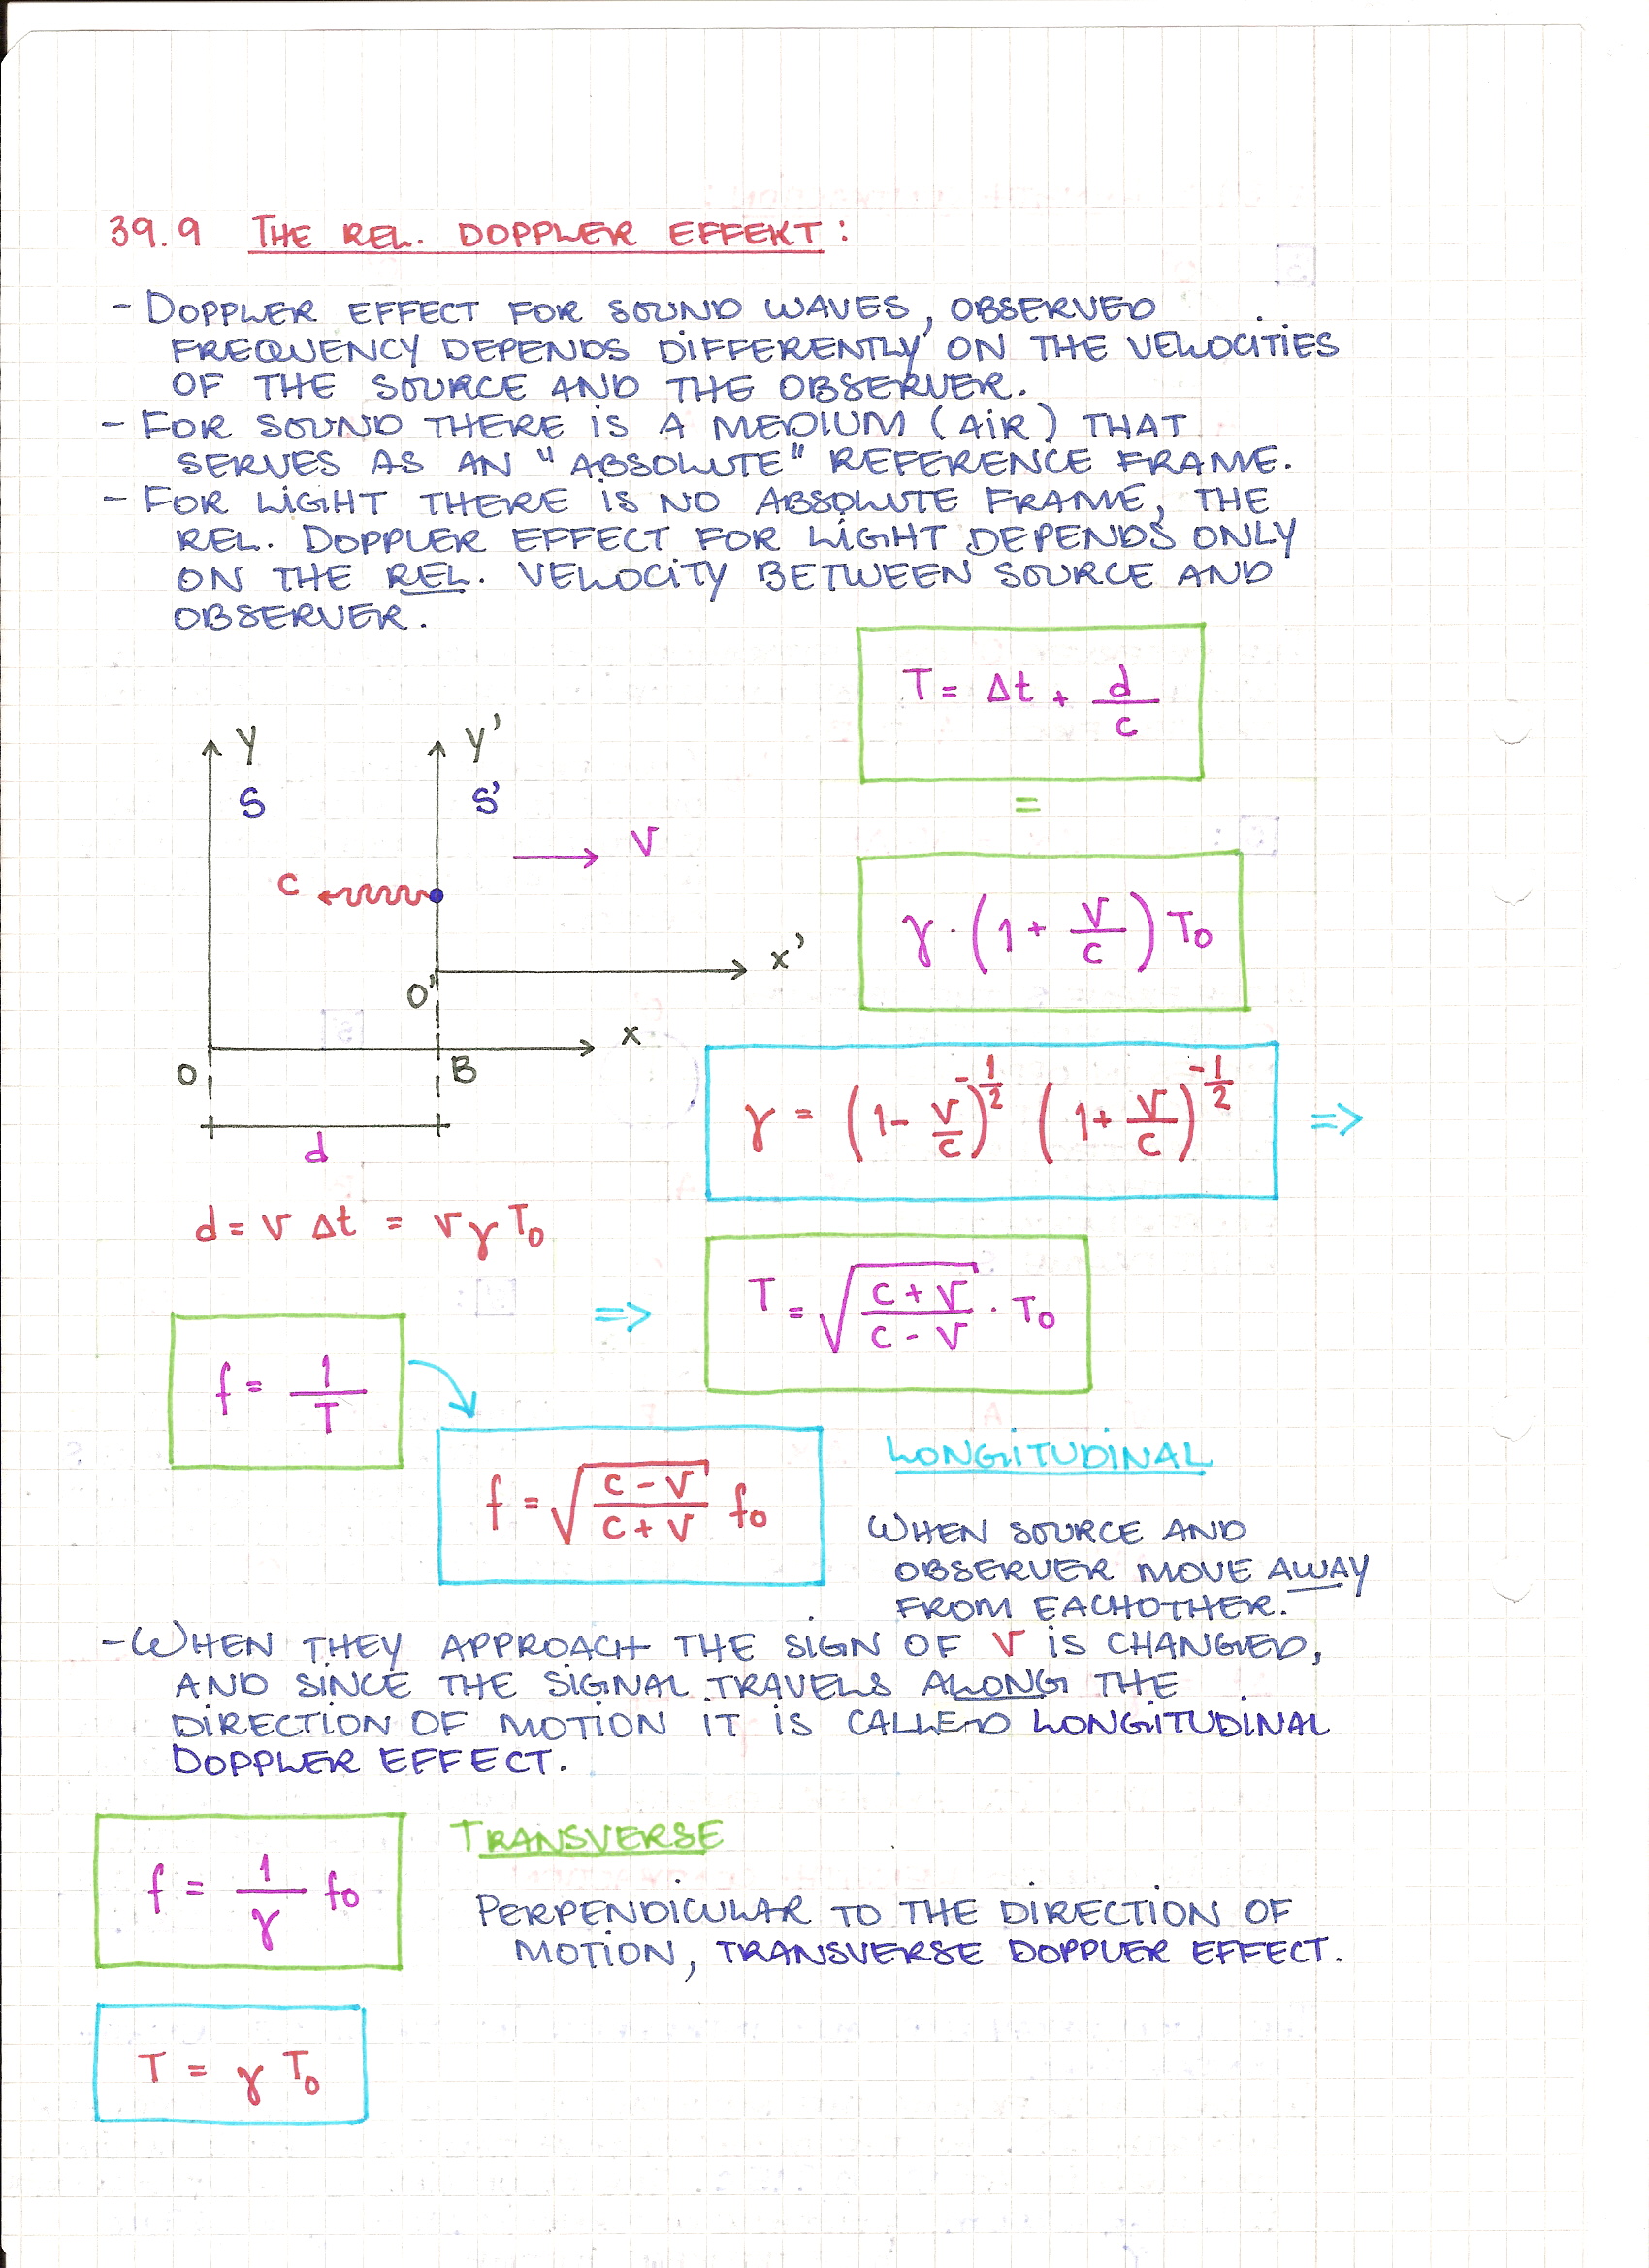 39.9 THE REL. DOPPLER EFFEKT:
- DOPPLER EFFECT FOR SOUND WAVES, OBSERVED
FREQUENCY DEPENDS DIFFERENTLY ON THE VELOCITIES
OF THE SOURCE AND THE OBSERVER.
- FOR SOUND THERE IS A MEDIUM (AIR) THAT
SERVES AS AN "ABSOLUTE" REFERENCE FRAME.
- FOR LIGHT THERE IS NO ABSOLUTE FRAME, THE
REL. DOPPLER EFFECT FOR LIGHT DEPENDS ONLY
ON THE REL. VELOCITY BETWEEN SOURCE AND
OBSERVER.
T = Δt + d/c
=
γ · (1 + v/c) T₀
y
S
y'
S'
v
c
x'
O'
x
O
B
d
γ = (1 - v/c)^-1/2 (1 + v/c)^-1/2 =>
d = v Δt = v γ T₀
=> T = √((c + v)/(c - v)) · T₀
f = 1/T
f = √((c - v)/(c + v)) f₀
LONGITUDINAL
WHEN SOURCE AND
OBSERVER MOVE AWAY
FROM EACHOTHER.
- WHEN THEY APPROACH THE SIGN OF v IS CHANGED,
AND SINCE THE SIGNAL TRAVELS ALONG THE
DIRECTION OF MOTION IT IS CALLED LONGITUDINAL
DOPPLER EFFECT.
f = 1/γ f₀
TRANSVERSE
PERPENDICULAR TO THE DIRECTION OF
MOTION, TRANSVERSE DOPPLER EFFECT.
T = γ T₀